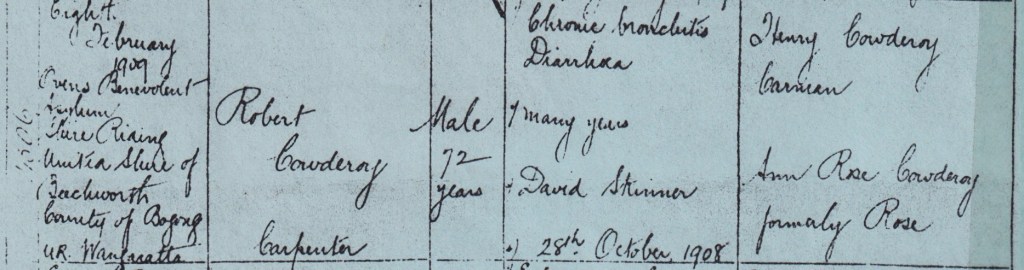 Eight
February
1909
Ovens Benevolent
Asylum
Shire Riding
United Shire of
Beechworth
County of Bogong
U.R. Wangaratta
Robert
Cowderoy
Carpenter
Male
72
years
Chronic bronchitis
Diarrhoea
many years
David Skinner
28th October, 1908
Henry Cowderoy
Carman
Ann Rose Cowderoy
formaly Rose